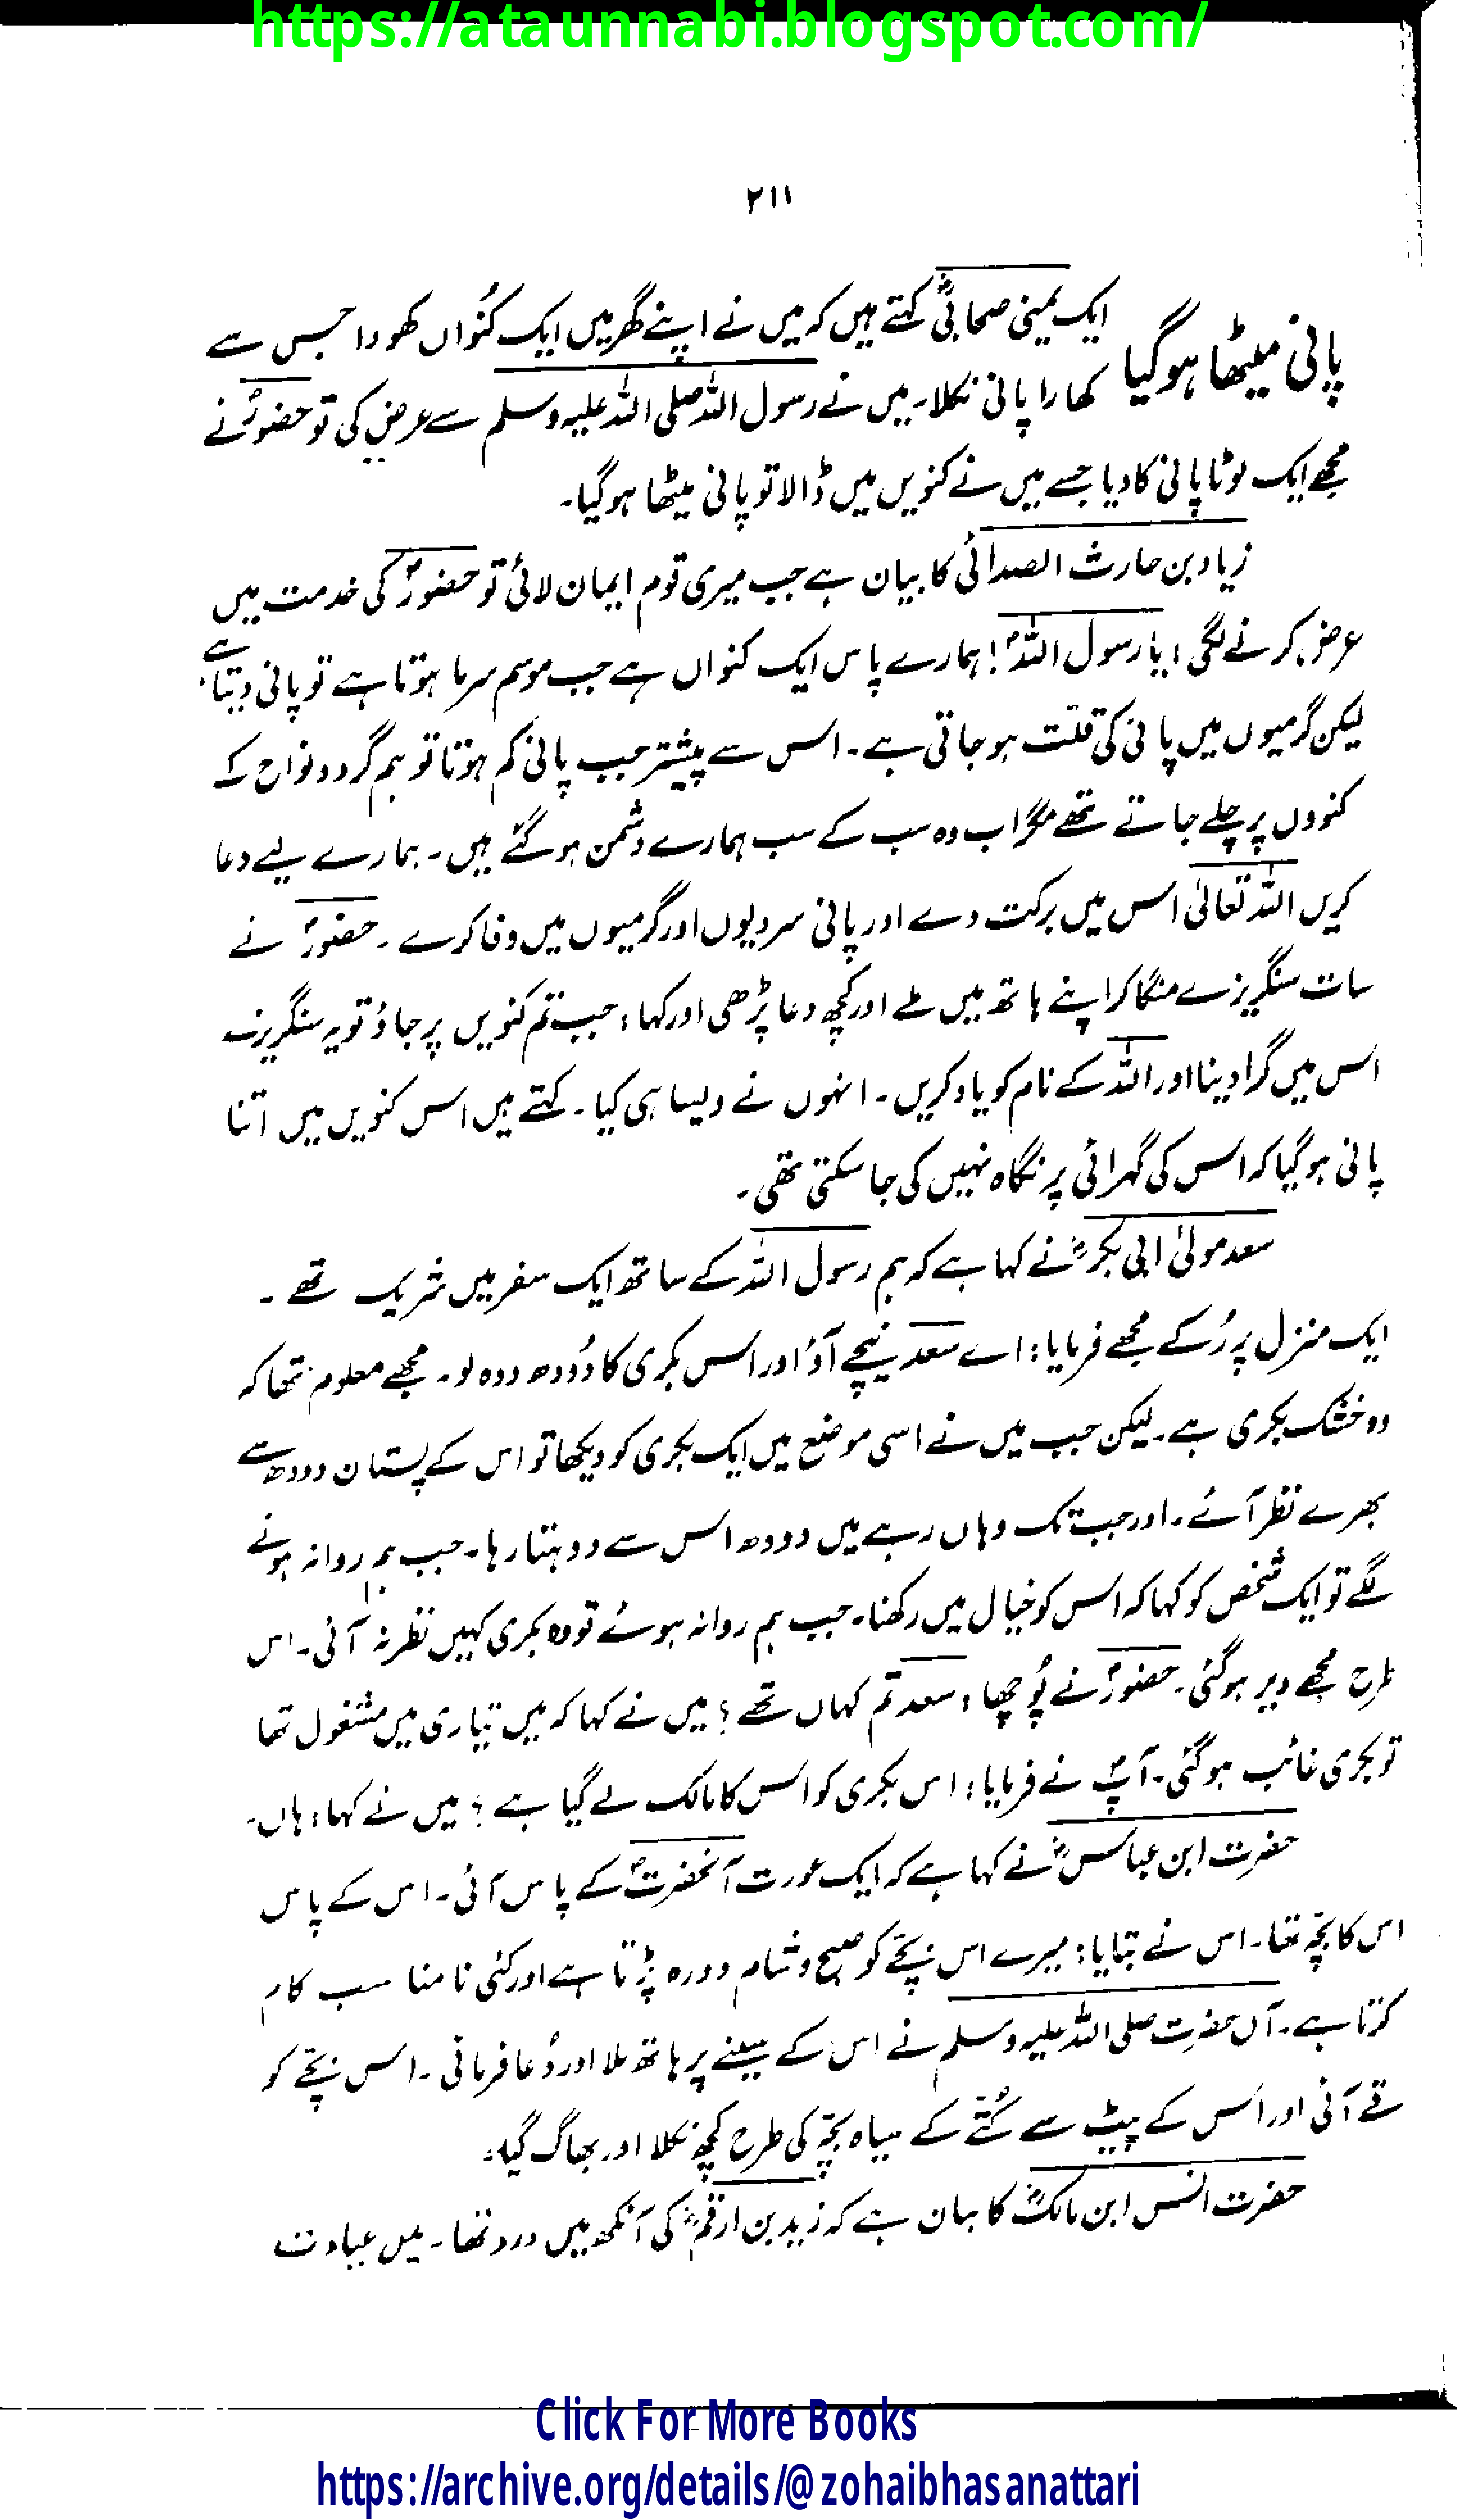 https://ataunnabi.blogspot.com/
۲۱۱
پانی میٹھا ہوگیا
ایک یمنی صحابیؓ کہتے ہیں کہ میں نے اپنے گھر میں ایک کنُواں کھودا جس سے
کھارا پانی نکلا۔ میں نے رسول اللہ صلی اللہ علیہ وسلم سے عرض کی تو حضورؐ نے
مجھے ایک لوٹا پانی کا دیا جسے میں نے کنویں میں ڈالا تو پانی میٹھا ہوگیا۔
زیاد بن حارث الصدائی کا بیان ہے جب میری قوم ایمان لائی تو حضورؐ کی خدمت میں
عرض کرنے لگی؛ یا رسول اللہؐ! ہمارے پاس ایک کنواں ہے جب موسم سرما ہوتا ہے تو پانی دیتا ہے
لیکن گرمیوں میں پانی کی قلّت ہو جاتی ہے۔ اس سے پیشتر جب پانی کم ہوتا تو ہم گردونواح کے
کنوؤں پر چلے جاتے تھے مگر اب وہ سب کے سب ہمارے دشمن ہوگئے ہیں۔ ہمارے لیے دعا
کریں اللہ تعالیٰ اس میں برکت دے اور پانی سردیوں اور گرمیوں میں وفا کرے۔ حضورؐ نے
سات سنگریزے منگا کر اپنے ہاتھ میں ملے اور کچھ دعا پڑھی اور کہا: جب تم کنویں پر جاؤ تو یہ سنگریزے
اس میں گرا دینا اور اللہ کے نام کو یاد کریں۔ انہوں نے ویسا ہی کیا۔ کہتے ہیں اس کنویں میں اتنا
پانی ہوگیا کہ اس کی گہرائی پر نگاہ نہیں کی جا سکتی تھی۔
سعد مولیٰ ابی بکرؓ نے کہا ہے کہ ہم رسول اللہ کے ساتھ ایک سفر میں شریک تھے۔
ایک منزل پر رُکے مجھے فرمایا: اے سعد نیچے آؤ اور اس بکری کا دُودھ دوہ لو۔ مجھے معلوم تھا کہ
وہ خشک بکری ہے۔ لیکن جب میں نے اسی موضع میں ایک بکری کو دیکھا تو اس کے پستان دودھ سے
بھرے نظر آئے۔ اور جب تک وہاں رہے میں دودھ اس سے دوہتا رہا۔ جب ہم روانہ ہونے
لگے تو ایک شخص کو کہا کہ اس کو خیال میں رکھنا۔ جب ہم روانہ ہوئے تو وہ بکری کہیں نظر نہ آئی۔ اس
طرح مجھے دیر ہوگئی۔ حضورؐ نے پُوچھا: سعد تم کہاں تھے؟ میں نے کہا کہ میں تیاری میں مشغول تھا
تو بکری غائب ہوگئی۔ آپؐ نے فرمایا: اس بکری کو اس کا مالک لے گیا ہے؟ میں نے کہا: ہاں۔
حضرت ابن عباسؓ نے کہا ہے کہ ایک عورت آنحضرتؐ کے پاس آئی۔ اس کے پاس
اس کا بچّہ تھا۔ اس نے بتایا: میرے اس بچّے کو صبح و شام دورہ پڑتا ہے اور کئی نامناسب کام
کرتا ہے۔ آں حضرت صلی اللہ علیہ وسلم نے اس کے سینے پر ہاتھ ملا اور دُعا فرمائی۔ اس بچّے کو
قے آئی اور اس کے پیٹ سے کُتّے کے سیاہ بچّہ کی طرح کچھ نکلا اور بھاگ گیا۔
حضرت انس ابن مالکؓ کا بیان ہے کہ زید بن ارقمؓ کی آنکھ میں درد تھا۔ میں عیادت
Click For More Books
https://archive.org/details/@zohaibhasanattari